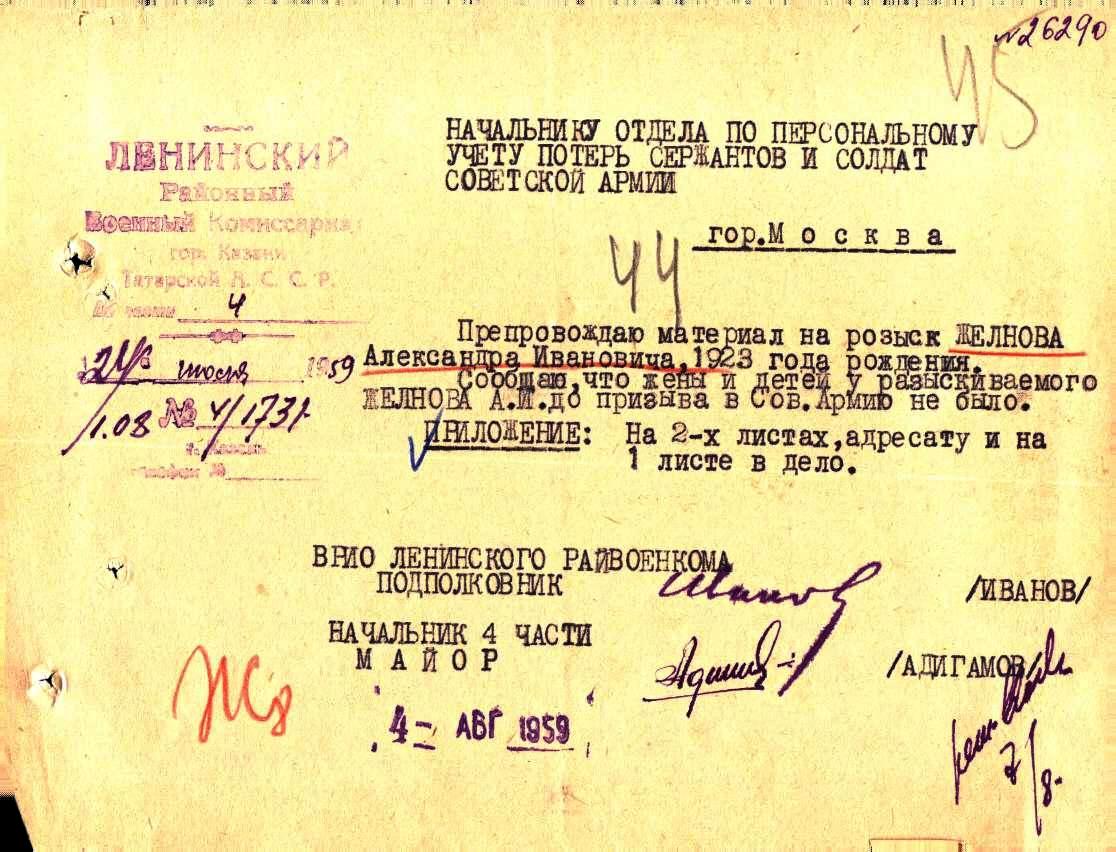 №26290
45
ЛЕНИНСКИЙ
Районный
Военный Комиссариа
гор. Казани
Татарской А. С. С. Р.
части 4
24 июля 1959
1.08 № 4/1731
г. Казань
НАЧАЛЬНИКУ ОТДЕЛА ПО ПЕРСОНАЛЬНОМУ
УЧЕТУ ПОТЕРЬ СЕРЖАНТОВ И СОЛДАТ
СОВЕТСКОЙ АРМИИ
гор.М о с к в а
44
Препровождаю материал на розыск ЖЕЛНОВА
Александра Ивановича,1923 года рождения.
Сообщаю,что жены и детей у разыскиваемого
ЖЕЛНОВА А.И.до призыва в Сов.Армию не было.
ПРИЛОЖЕНИЕ: На 2-х листах,адресату и на
1 листе в дело.
ВРИО ЛЕНИНСКОГО РАЙВОЕНКОМА
ПОДПОЛКОВНИК Иванов /ИВАНОВ/
НАЧАЛЬНИК 4 ЧАСТИ
М А Й О Р /АДИГАМОВ/
4 - АВГ 1959
7/8-